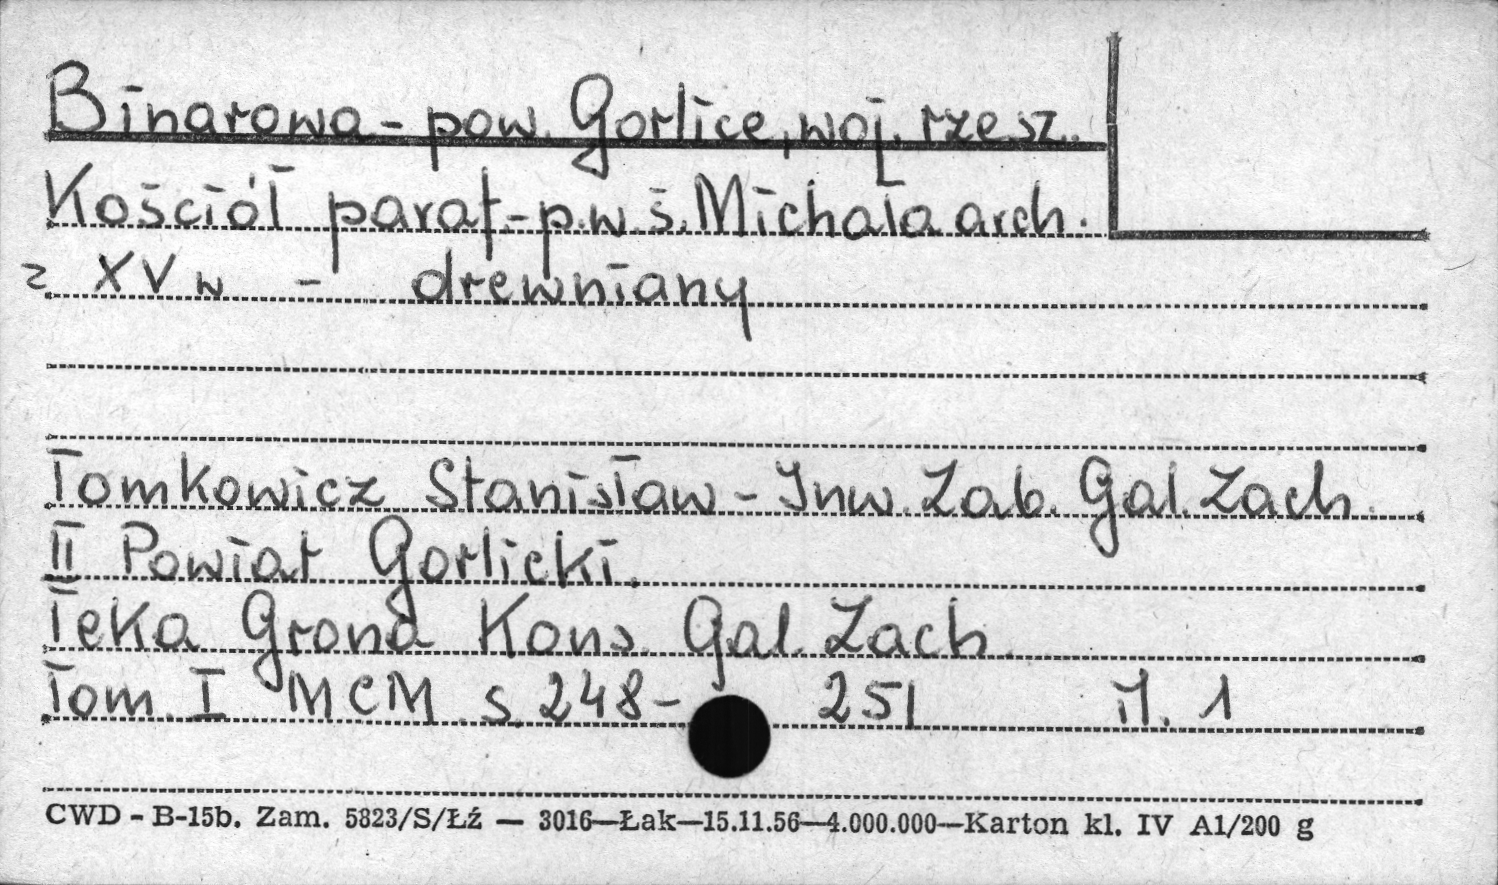 Binarowa - pow. Gorlice, woj. rzesz.
Kościół paraf. - p.w. ś. Michała arch.
z XV w - drewniany
Tomkowicz Stanisław - Inw. Zab. Gal. Zach.
II Powiat Gorlicki.
Teka Grona Kons. Gal. Zach.
Tom I MCM s. 248 - 251 il. 1
CWD - B-15b. Zam. 5823/S/Łź — 3016—Łak—15.11.56—4.000.000—Karton kl. IV A1/200 g